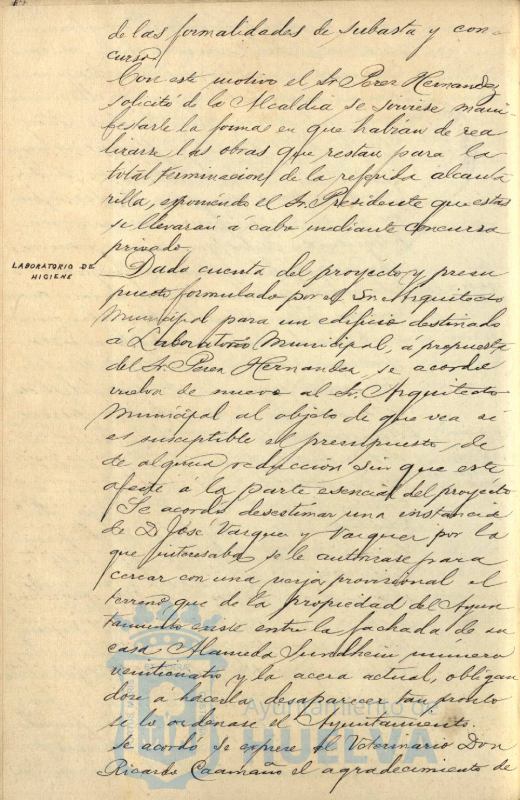 de las formalidades de subasta y con-
curso.
Con este motivo el Sr. Perez Hernandez
solicitó de la Alcaldia se sirviese mani-
festarle la forma en que habrian de rea
lizarse las obras que restan para la
total terminacion de la referida alcanta
rilla, exponiendo el Sr. Presidente que estas
se llevarán á cabo mediante concurso
privado.
LABORATORIO DE
HIGIENE
Dada cuenta del proyecto y presu
puesto formulado por el Sr. Arquitecto
Municipal para un edificio destinado
á Laboratorio Municipal, á propuesta
del Sr. Perez Hernandez, se acordó
vuelva de nuevo al Sr. Arquitecto
Municipal al objeto de que vea si
es susceptible el presupuesto de
de alguna reduccion sin que este
afecte á la parte esencial del proyecto
Se acordó desestimar una instancia
de D. José Vazquez y Vazquez por la
que interesaba se le autorizase para
cercar con una verja provisional el
terreno que de la propiedad del Ayun
tamiento existe entre la fachada de su
casa Alameda Sundheim número
veinticuatro y la acera actual, obligan
dose á hacerla desaparecer tan pronto
se lo ordenase el Ayuntamiento.
Se acordó se exprese al Veterinario Don
Ricardo Caamaño el agradecimiento de
Ayuntamiento de
HUELVA